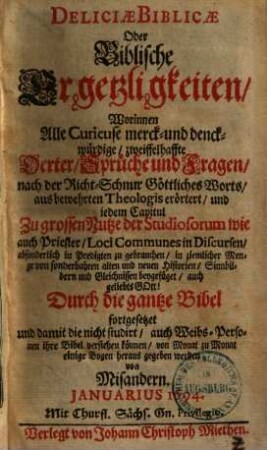 DELICIÆ BIBLICÆ
Oder
Biblische
Ergetzligkeiten/
Worinnen
Alle Curieuse merck- und denck-
würdige/ zweiffelhaffte
Oerter/ Sprüche und Fragen/
nach der Richt-Schnur Göttliches Worts/
aus bewehrten Theologis erörtert/ und
iedem Capitul
Zu grossen Nutze der Studiosorum wie
auch Priester/ Loci Communes in Discursen/
absonderlich in Predigten zu gebrauchen/ in ziemlicher Men-
ge von sonderbahren alten und neuen Historien/ Sinnbil-
dern und Gleichnissen beygefüget/ auch
geliebts GOtt/
Durch die gantze Bibel
fortgesetzet
und damit die nicht studirt/ auch Weibs-Perso-
nen ihre Bibel verstehen können/ von Monat zu Monat
einige Bogen heraus gegeben werden
von
Misandern.
JANUARIUS 1694.
Mit Churfl. Sächs. Gn. Privilegio.
Verlegt von Johann Christoph Miethen.
AUGSBURG